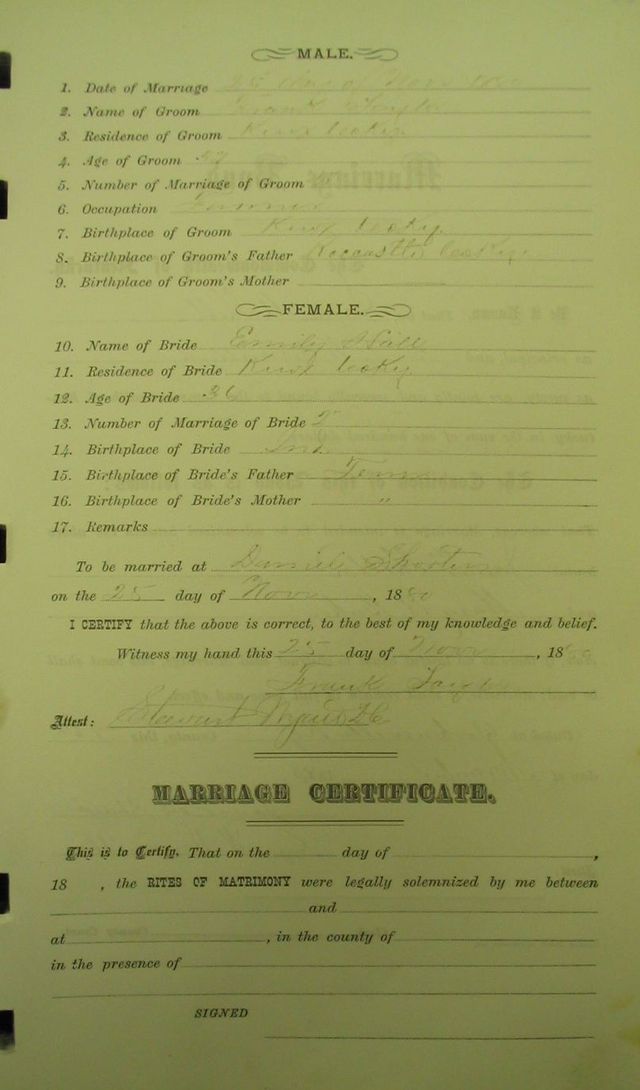 MALE.
1. Date of Marriage 25 day of Nov
2. Name of Groom Frank Taylor
3. Residence of Groom Knox Co Ky
4. Age of Groom
5. Number of Marriage of Groom
6. Occupation Farmer
7. Birthplace of Groom Knox Co Ky.
8. Birthplace of Groom's Father Co Ky
9. Birthplace of Groom's Mother
FEMALE.
10. Name of Bride Emily
11. Residence of Bride Knox Co Ky
12. Age of Bride 36
13. Number of Marriage of Bride 2
14. Birthplace of Bride
15. Birthplace of Bride's Father Tenn
16. Birthplace of Bride's Mother "
17. Remarks
To be married at Daniel
on the 25 day of Nov , 188
I CERTIFY that the above is correct, to the best of my knowledge and belief.
Witness my hand this 25 day of Nov , 188
Frank Taylor
Attest: Stewart
MARRIAGE CERTIFICATE.
This is to Certify. That on the day of ,
18 , the RITES OF MATRIMONY were legally solemnized by me between
and
at , in the county of
in the presence of
SIGNED